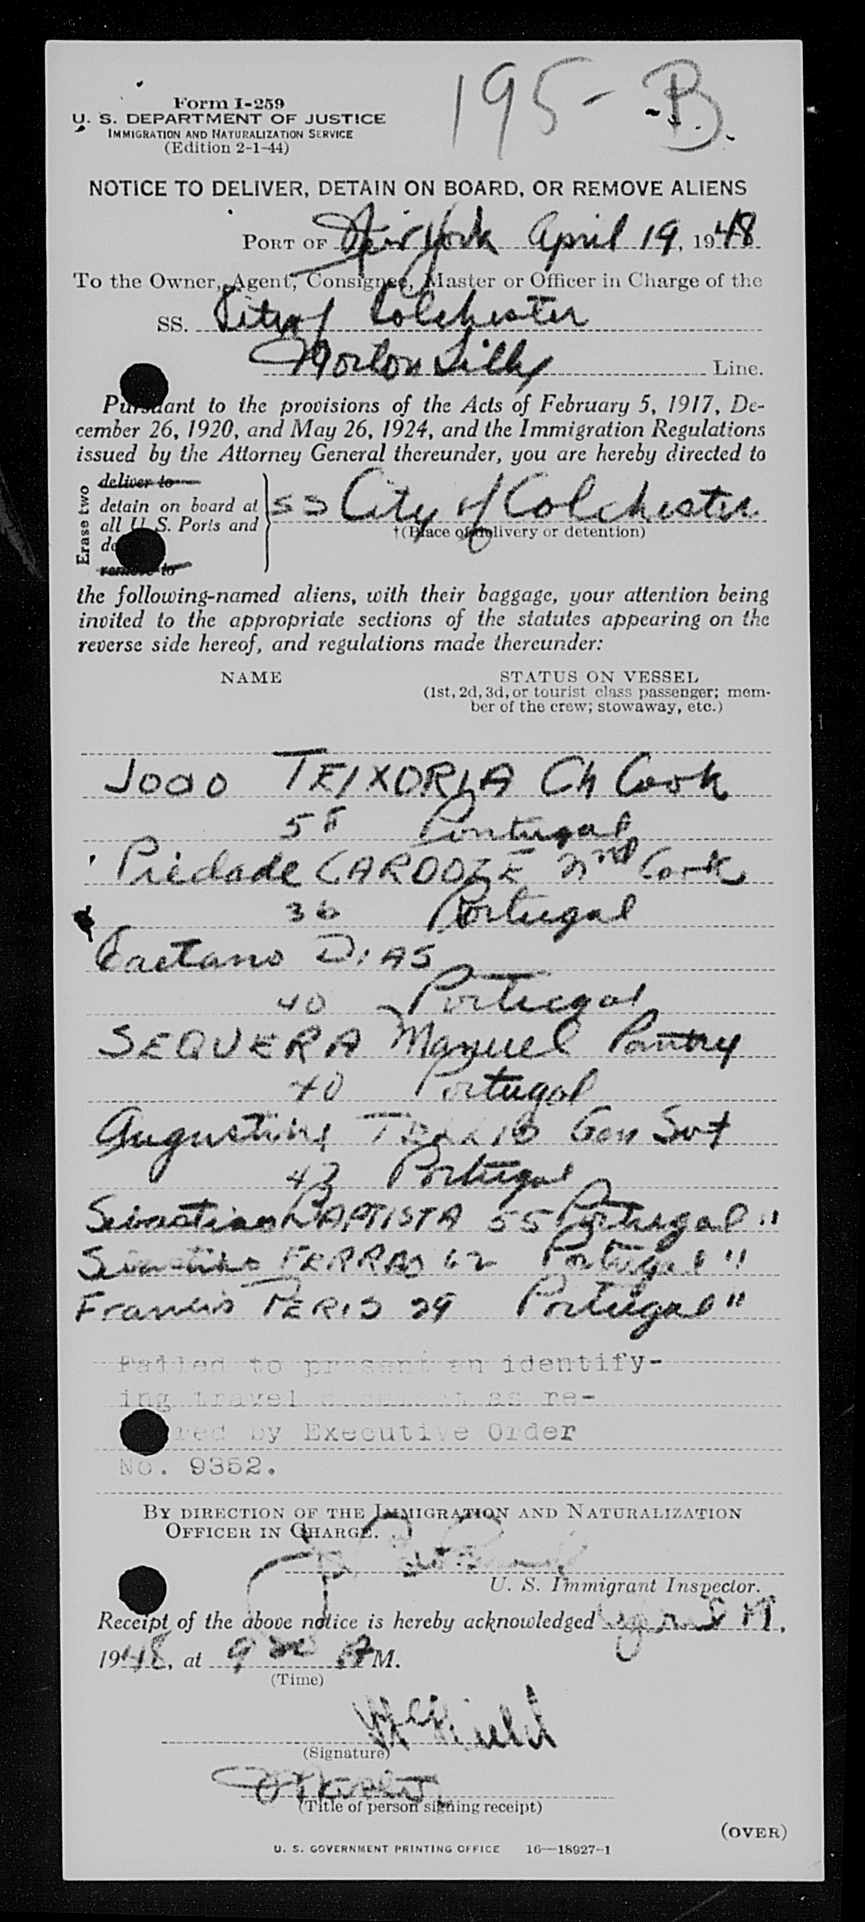 195-B.
Form I-259
U. S. DEPARTMENT OF JUSTICE
IMMIGRATION AND NATURALIZATION SERVICE
(Edition 2-1-44)
NOTICE TO DELIVER, DETAIN ON BOARD, OR REMOVE ALIENS
PORT OF New York April 19, 1948
To the Owner, Agent, Consignee, Master or Officer in Charge of the
SS. City of Colchester
Norton Lilly Line.
Pursuant to the provisions of the Acts of February 5, 1917, De-
cember 26, 1920, and May 26, 1924, and the Immigration Regulations
issued by the Attorney General thereunder, you are hereby directed to
Erase two
deliver to
detain on board at
all U. S. Ports and
remove to
SS City of Colchester
†(Place of delivery or detention)
the following-named aliens, with their baggage, your attention being
invited to the appropriate sections of the statutes appearing on the
reverse side hereof, and regulations made thereunder:
NAME STATUS ON VESSEL
(1st, 2d, 3d, or tourist class passenger; mem-
ber of the crew; stowaway, etc.)
Joao TEIXORIA Ch Cook
58 Portugal
Piedade CARDOZE 2nd Cook
36 Portugal
Caetano DIAS
40 Portugal
SEQUERA Manuel Pantry
40 Portugal
Augustine Gen Svt
42 Portugal
Sebastiao BAPTISTA 55 Portugal "
FERRAO 62 Portugal "
Francis PERIS 29 Portugal "
Failed to present an identify-
ing travel document as re-
red by Executive Order
No. 9352.
BY DIRECTION OF THE IMMIGRATION AND NATURALIZATION
OFFICER IN CHARGE.
U. S. Immigrant Inspector.
Receipt of the above notice is hereby acknowledged April 19,
1948, at 9 20 A M.
(Time)
(Signature)
(Title of person signing receipt)
(OVER)
U. S. GOVERNMENT PRINTING OFFICE 16—18927-1